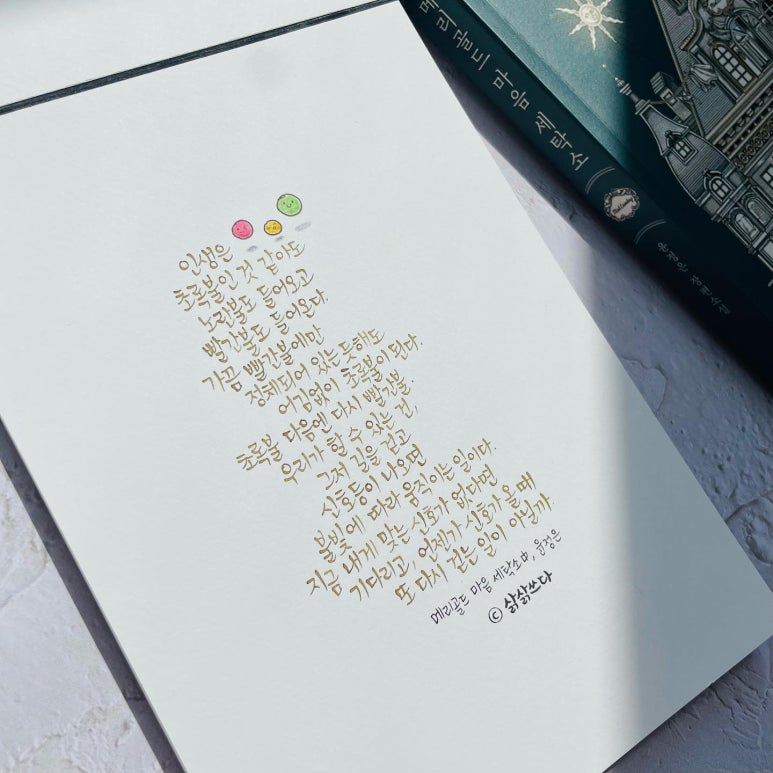 인생은
초록불인 것 같아도
노란불도 들어오고
빨간불도 들어온다.
가끔 빨간불에만
정체되어 있는 듯해도
어김없이 초록불이 된다.
초록불 다음엔 다시 빨간불.
우리가 할 수 있는 건,
그저 길을 걷고
신호등이 나오면
불빛에 따라 움직이는 일이다.
지금 내게 맞는 신호가 없다면
기다리고, 언젠가 신호가 올 때
또 다시 걷는 일이 아닐까.
메리골드 마음 세탁소 中, 윤정은
ⓒ 삵삵쓰다
메리골드 마음 세탁소
윤정은 장편소설